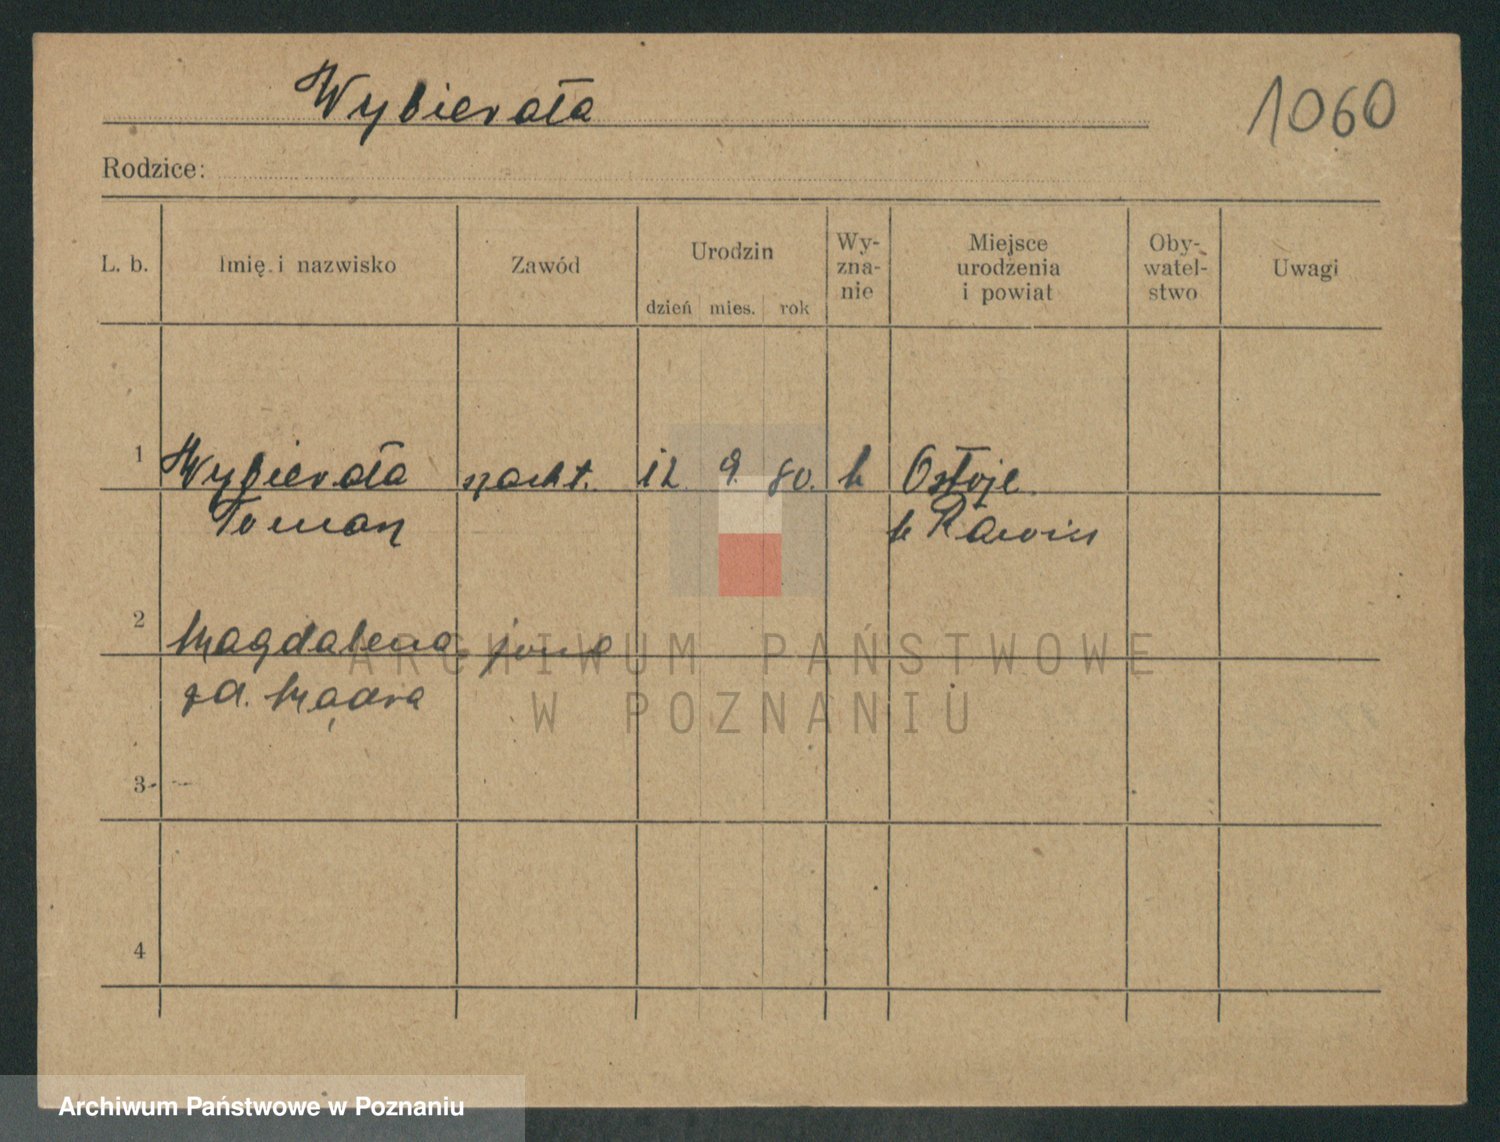 Wybierała
1060
Rodzice:
L. b. Imię i nazwisko Zawód Urodzin dzień mies. rok Wy-zna-nie Miejsce urodzenia i powiat Oby-watel-stwo Uwagi
1 Wybierała 12. 9. 80. k Ostoje
Tomasz
2 Magdalena żona
zd. Mądra
3
4
ARCHIWUM PAŃSTWOWE
W POZNANIU
Archiwum Państwowe w Poznaniu